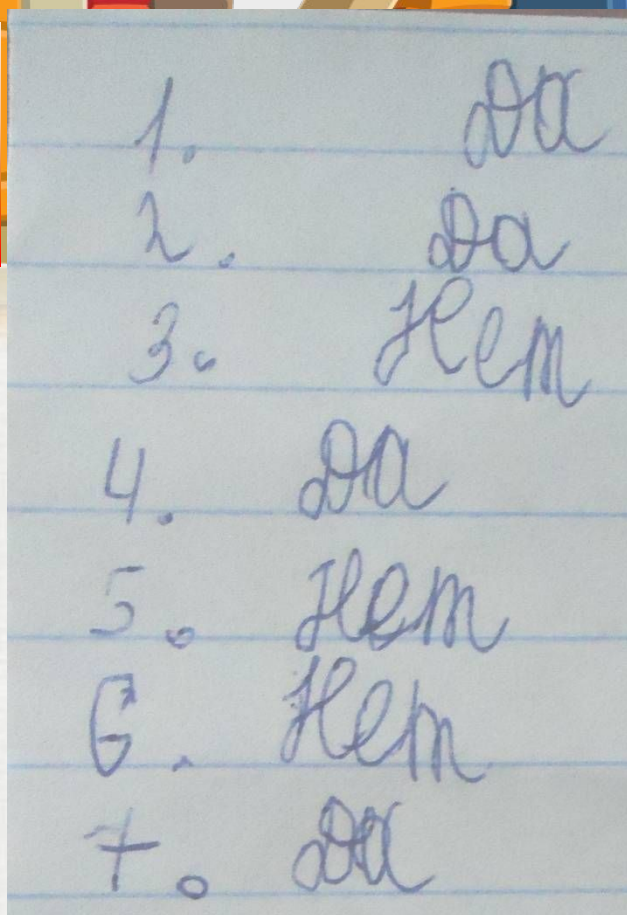 1. Да
2. Да
3. Нет
4. Да
5. Нет
6. Нет
7. Да